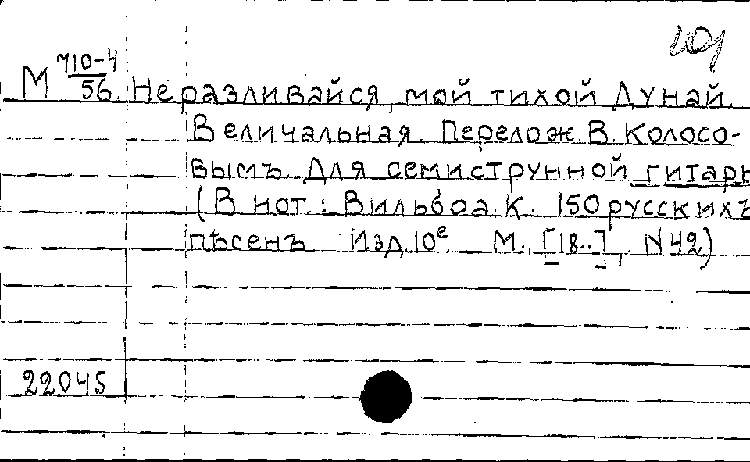 101
М М10-4/56 Не разливайся, мой тихой Дунай.
Величальная. Перелож. В. Колосо-
вымъ. Для семиструнной гитары
(В нот.: Вильбоа К. 150 русскихъ
пѣсенъ Изд. 10е М. [18..], N 42)
22045